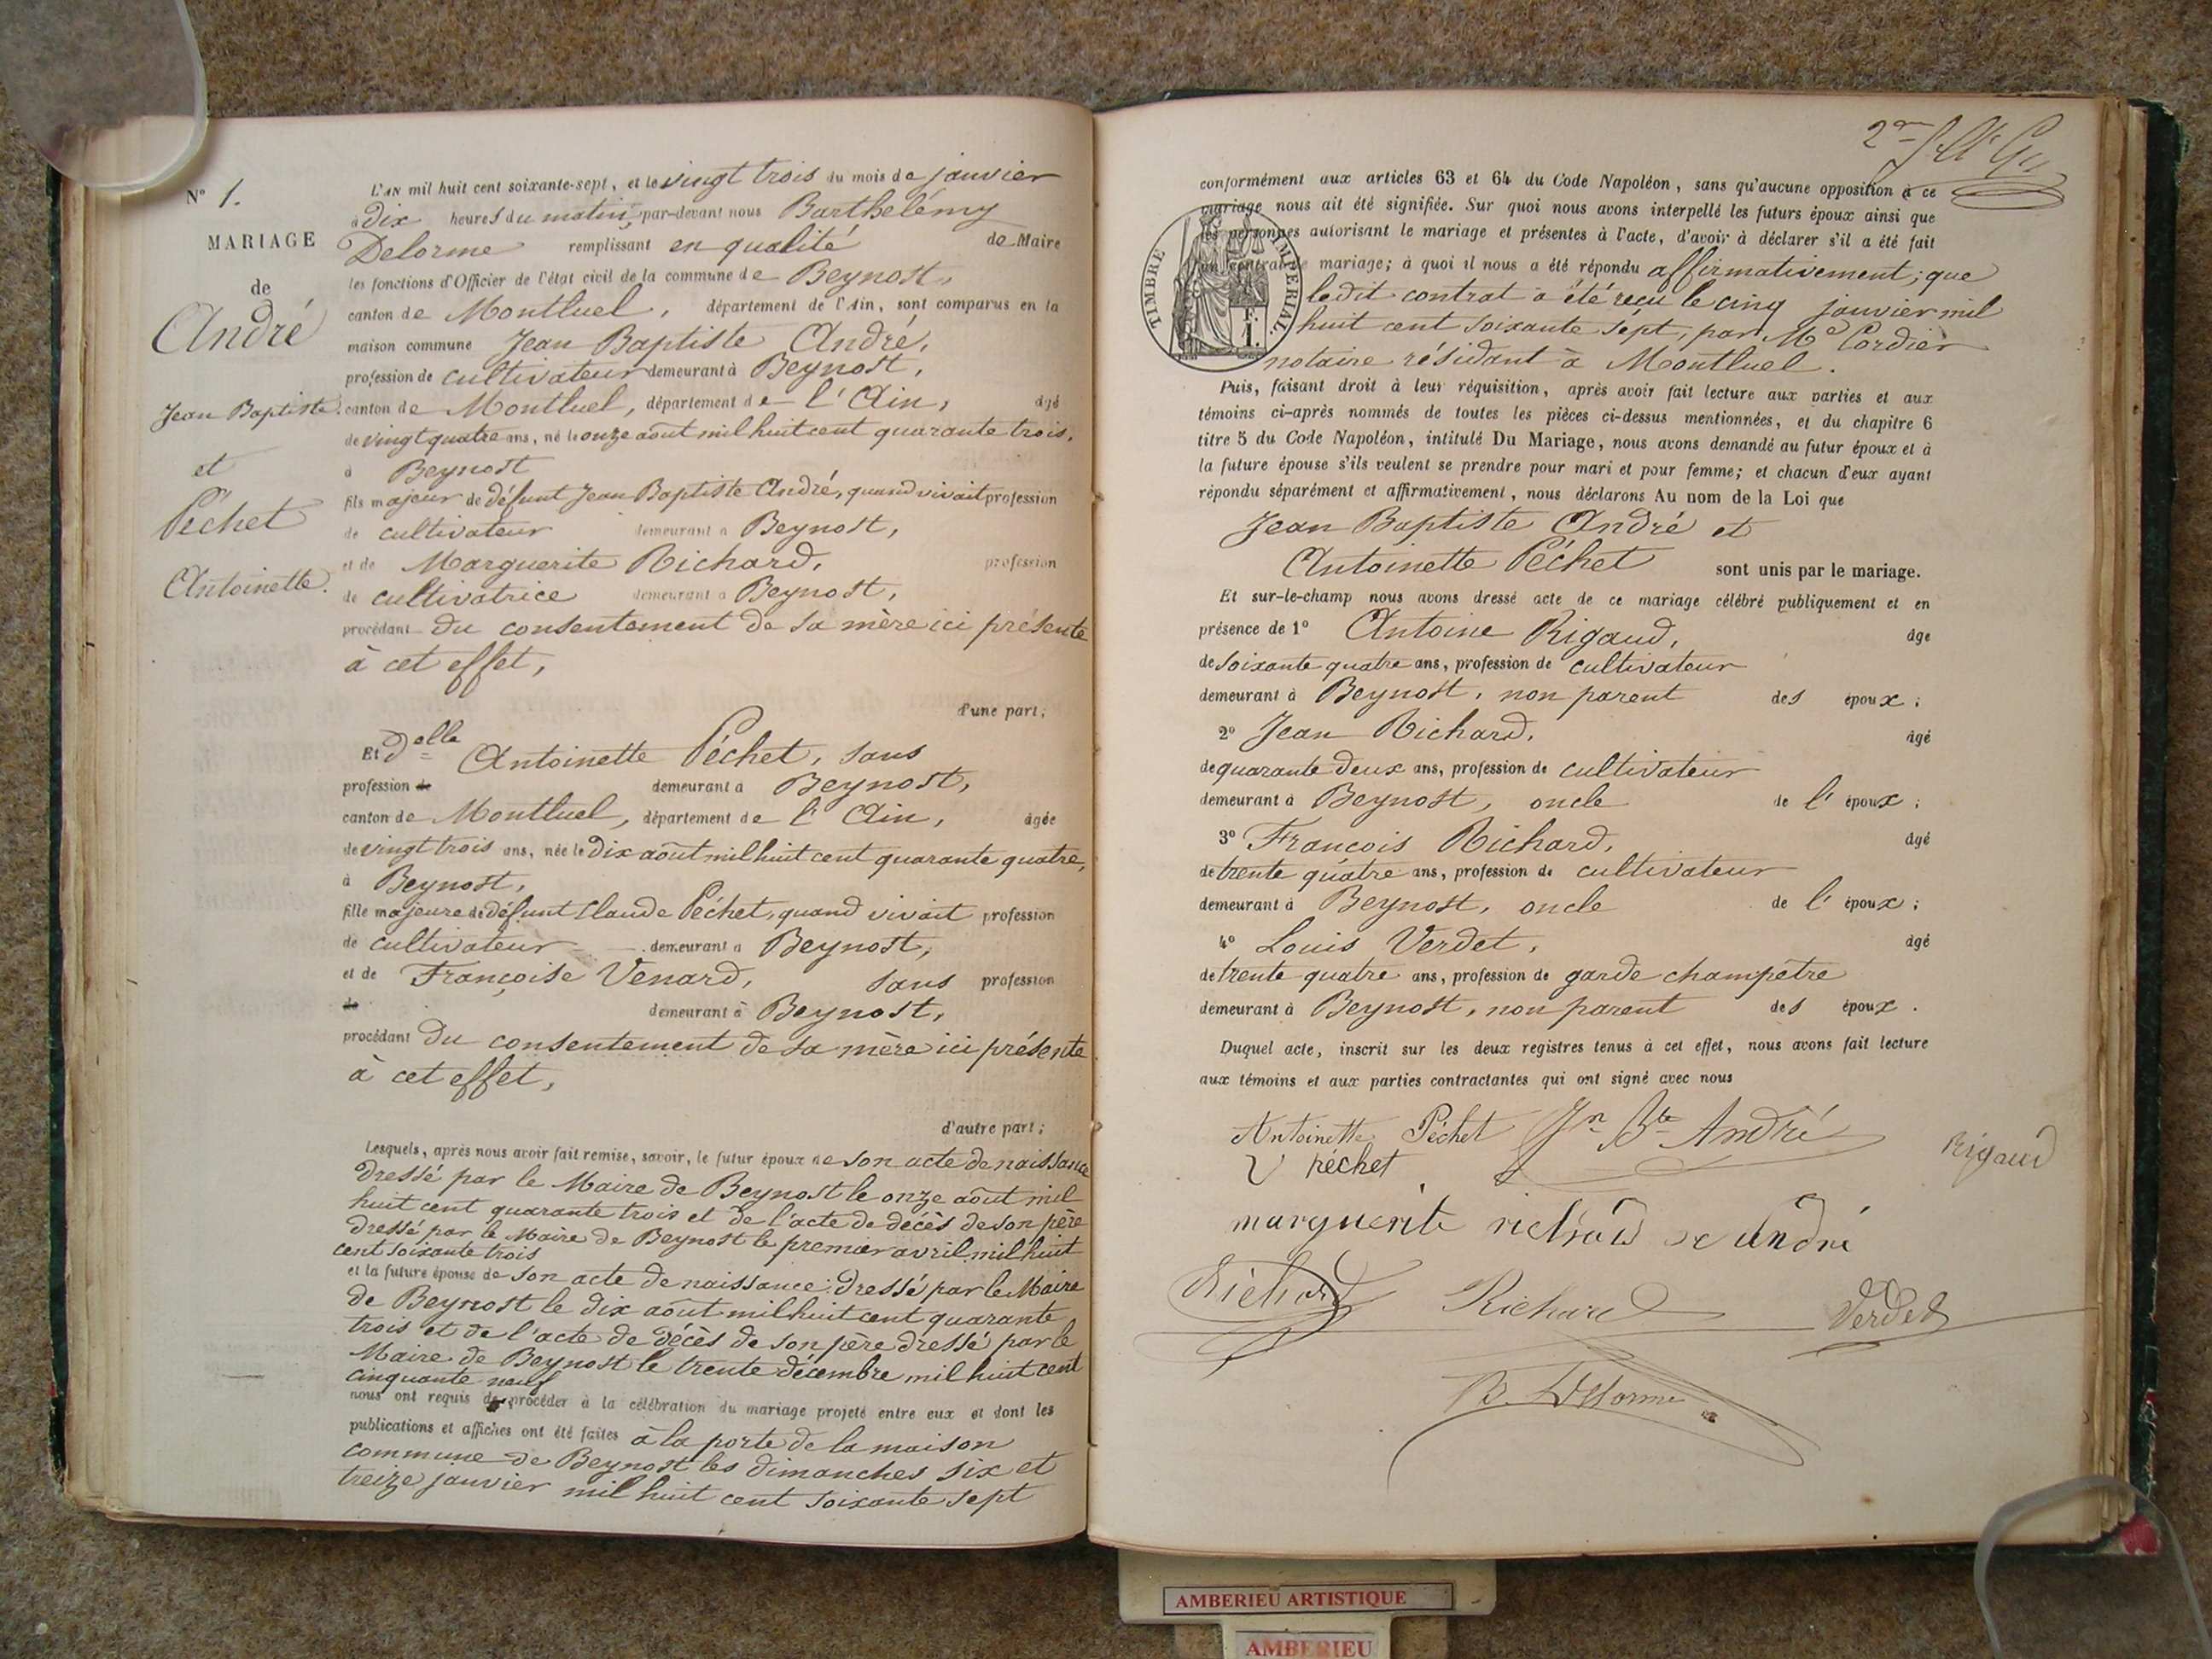 N° 1.
MARIAGE
de
André
Jean Baptiste
et
Péchet
Antoinette.
L'AN mil huit cent soixante-sept, et le vingt trois du mois de janvier
à dix heures du matin, par-devant nous Barthelémy
Delorme remplissant en qualité de Maire
les fonctions d'Officier de l'état civil de la commune de Beynost,
canton de Montluel, département de l'Ain, sont comparus en la
maison commune Jean Baptiste André,
profession de cultivateur demeurant à Beynost,
canton de Montluel, département de l'Ain, âgé
de vingt quatre ans, né le onze août mil huit cent quarante trois,
à Beynost
fils majeur de défunt Jean Baptiste André, quand vivait profession
de cultivateur demeurant à Beynost,
et de Marguerite Richard, profession
de cultivatrice demeurant à Beynost,
procédant du consentement de sa mère ici présente
à cet effet,
d'une part;
Et Delle Antoinette Péchet, sans
profession de demeurant à Beynost,
canton de Montluel, département de l'Ain, âgée
de vingt trois ans, née le dix août mil huit cent quarante quatre,
à Beynost,
fille majeure de défunt Claude Péchet, quand vivait profession
de cultivateur demeurant à Beynost,
et de Françoise Venard, sans profession
de demeurant à Beynost,
procédant du consentement de sa mère ici présente
à cet effet,
d'autre part;
Lesquels, après nous avoir fait remise, savoir, le futur époux de son acte de naissance
dressé par le Maire de Beynost le onze août mil
huit cent quarante trois et de l'acte de décès de son père
dressé par le Maire de Beynost le premier avril mil huit
cent soixante trois
et la future épouse de son acte de naissance dressé par le Maire
de Beynost le dix août mil huit cent quarante
trois et de l'acte de décès de son père dressé par le
Maire de Beynost le trente décembre mil huit cent
cinquante neuf
nous ont requis de procéder à la célébration du mariage projeté entre eux et dont les
publications et affiches ont été faites à la porte de la maison
commune de Beynost les dimanches six et
treize janvier mil huit cent soixante sept
2me
conformément aux articles 63 et 64 du Code Napoléon, sans qu'aucune opposition à ce
mariage nous ait été signifiée. Sur quoi nous avons interpellé les futurs époux ainsi que
les personnes autorisant le mariage et présentes à l'acte, d'avoir à déclarer s'il a été fait
un contrat de mariage; à quoi il nous a été répondu affirmativement; que
ledit contrat a été reçu le cinq janvier mil
huit cent soixante sept, par Me Cordier
notaire résidant à Montluel.
TIMBRE IMPÉRIAL.
F.
1.
Puis, faisant droit à leur réquisition, après avoir fait lecture aux parties et aux
témoins ci-après nommés de toutes les pièces ci-dessus mentionnées, et du chapitre 6
titre 5 du Code Napoléon, intitulé Du Mariage, nous avons demandé au futur époux et à
la future épouse s'ils veulent se prendre pour mari et pour femme; et chacun d'eux ayant
répondu séparément et affirmativement, nous déclarons Au nom de la Loi que
Jean Baptiste André et
Antoinette Péchet sont unis par le mariage.
Et sur-le-champ nous avons dressé acte de ce mariage célébré publiquement et en
présence de 1° Antoine Rigaud, âgé
de soixante quatre ans, profession de cultivateur
demeurant à Beynost, non parent des époux;
2° Jean Richard, âgé
de quarante deux ans, profession de cultivateur
demeurant à Beynost, oncle de l'époux;
3° François Richard, âgé
de trente quatre ans, profession de cultivateur
demeurant à Beynost, oncle de l'époux;
4° Louis Verdet, âgé
de trente quatre ans, profession de garde champêtre
demeurant à Beynost, non parent des époux.
Duquel acte, inscrit sur les deux registres tenus à cet effet, nous avons fait lecture
aux témoins et aux parties contractantes qui ont signé avec nous
Antoinette Péchet Jn Bte André
Rigaud
V péchet
marguerite richard andré
Richard Richard Verdet
B. Delorme
AMBERIEU ARTISTIQUE
AMBERIEU